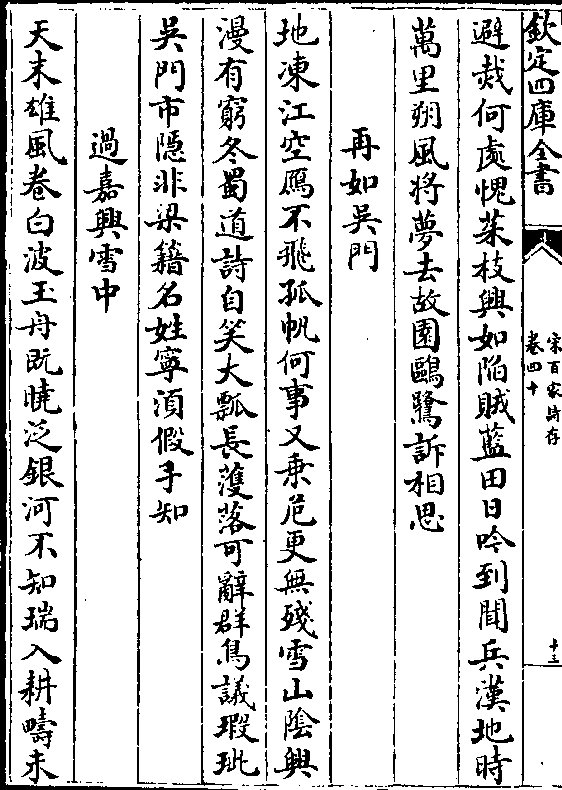 欽定四庫全書
宋百家詩存
卷四十
十三
避烖何處愧茱枝興如陷賊藍田日吟到聞兵漢地時
萬里朔風將夢去故園鷗鷺訴相思
再如吳門
地凍江空鴈不飛孤帆何事又乗危更無殘雪山隂興
漫有窮冬蜀道詩自笑大瓢長濩落可辭群鳥議瑕玼
吳門市隱非梁籍名姓寧湏假手知
過嘉興雪中
天末雄風卷白波玉舟既曉泛銀河不知瑞入耕疇未